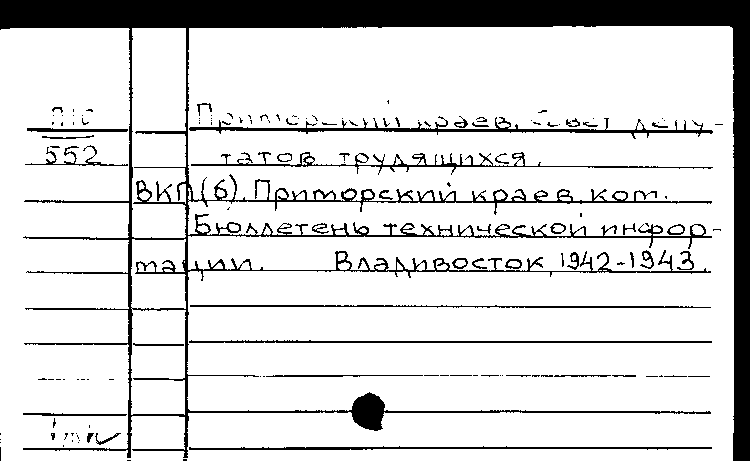 П1С
552
Приморский краев. Совет депу-
татов трудящихся.
ВКП(б). Приморский краев. ком.
Бюллетень технической инфор-
мации. Владивосток, 1942-1943.